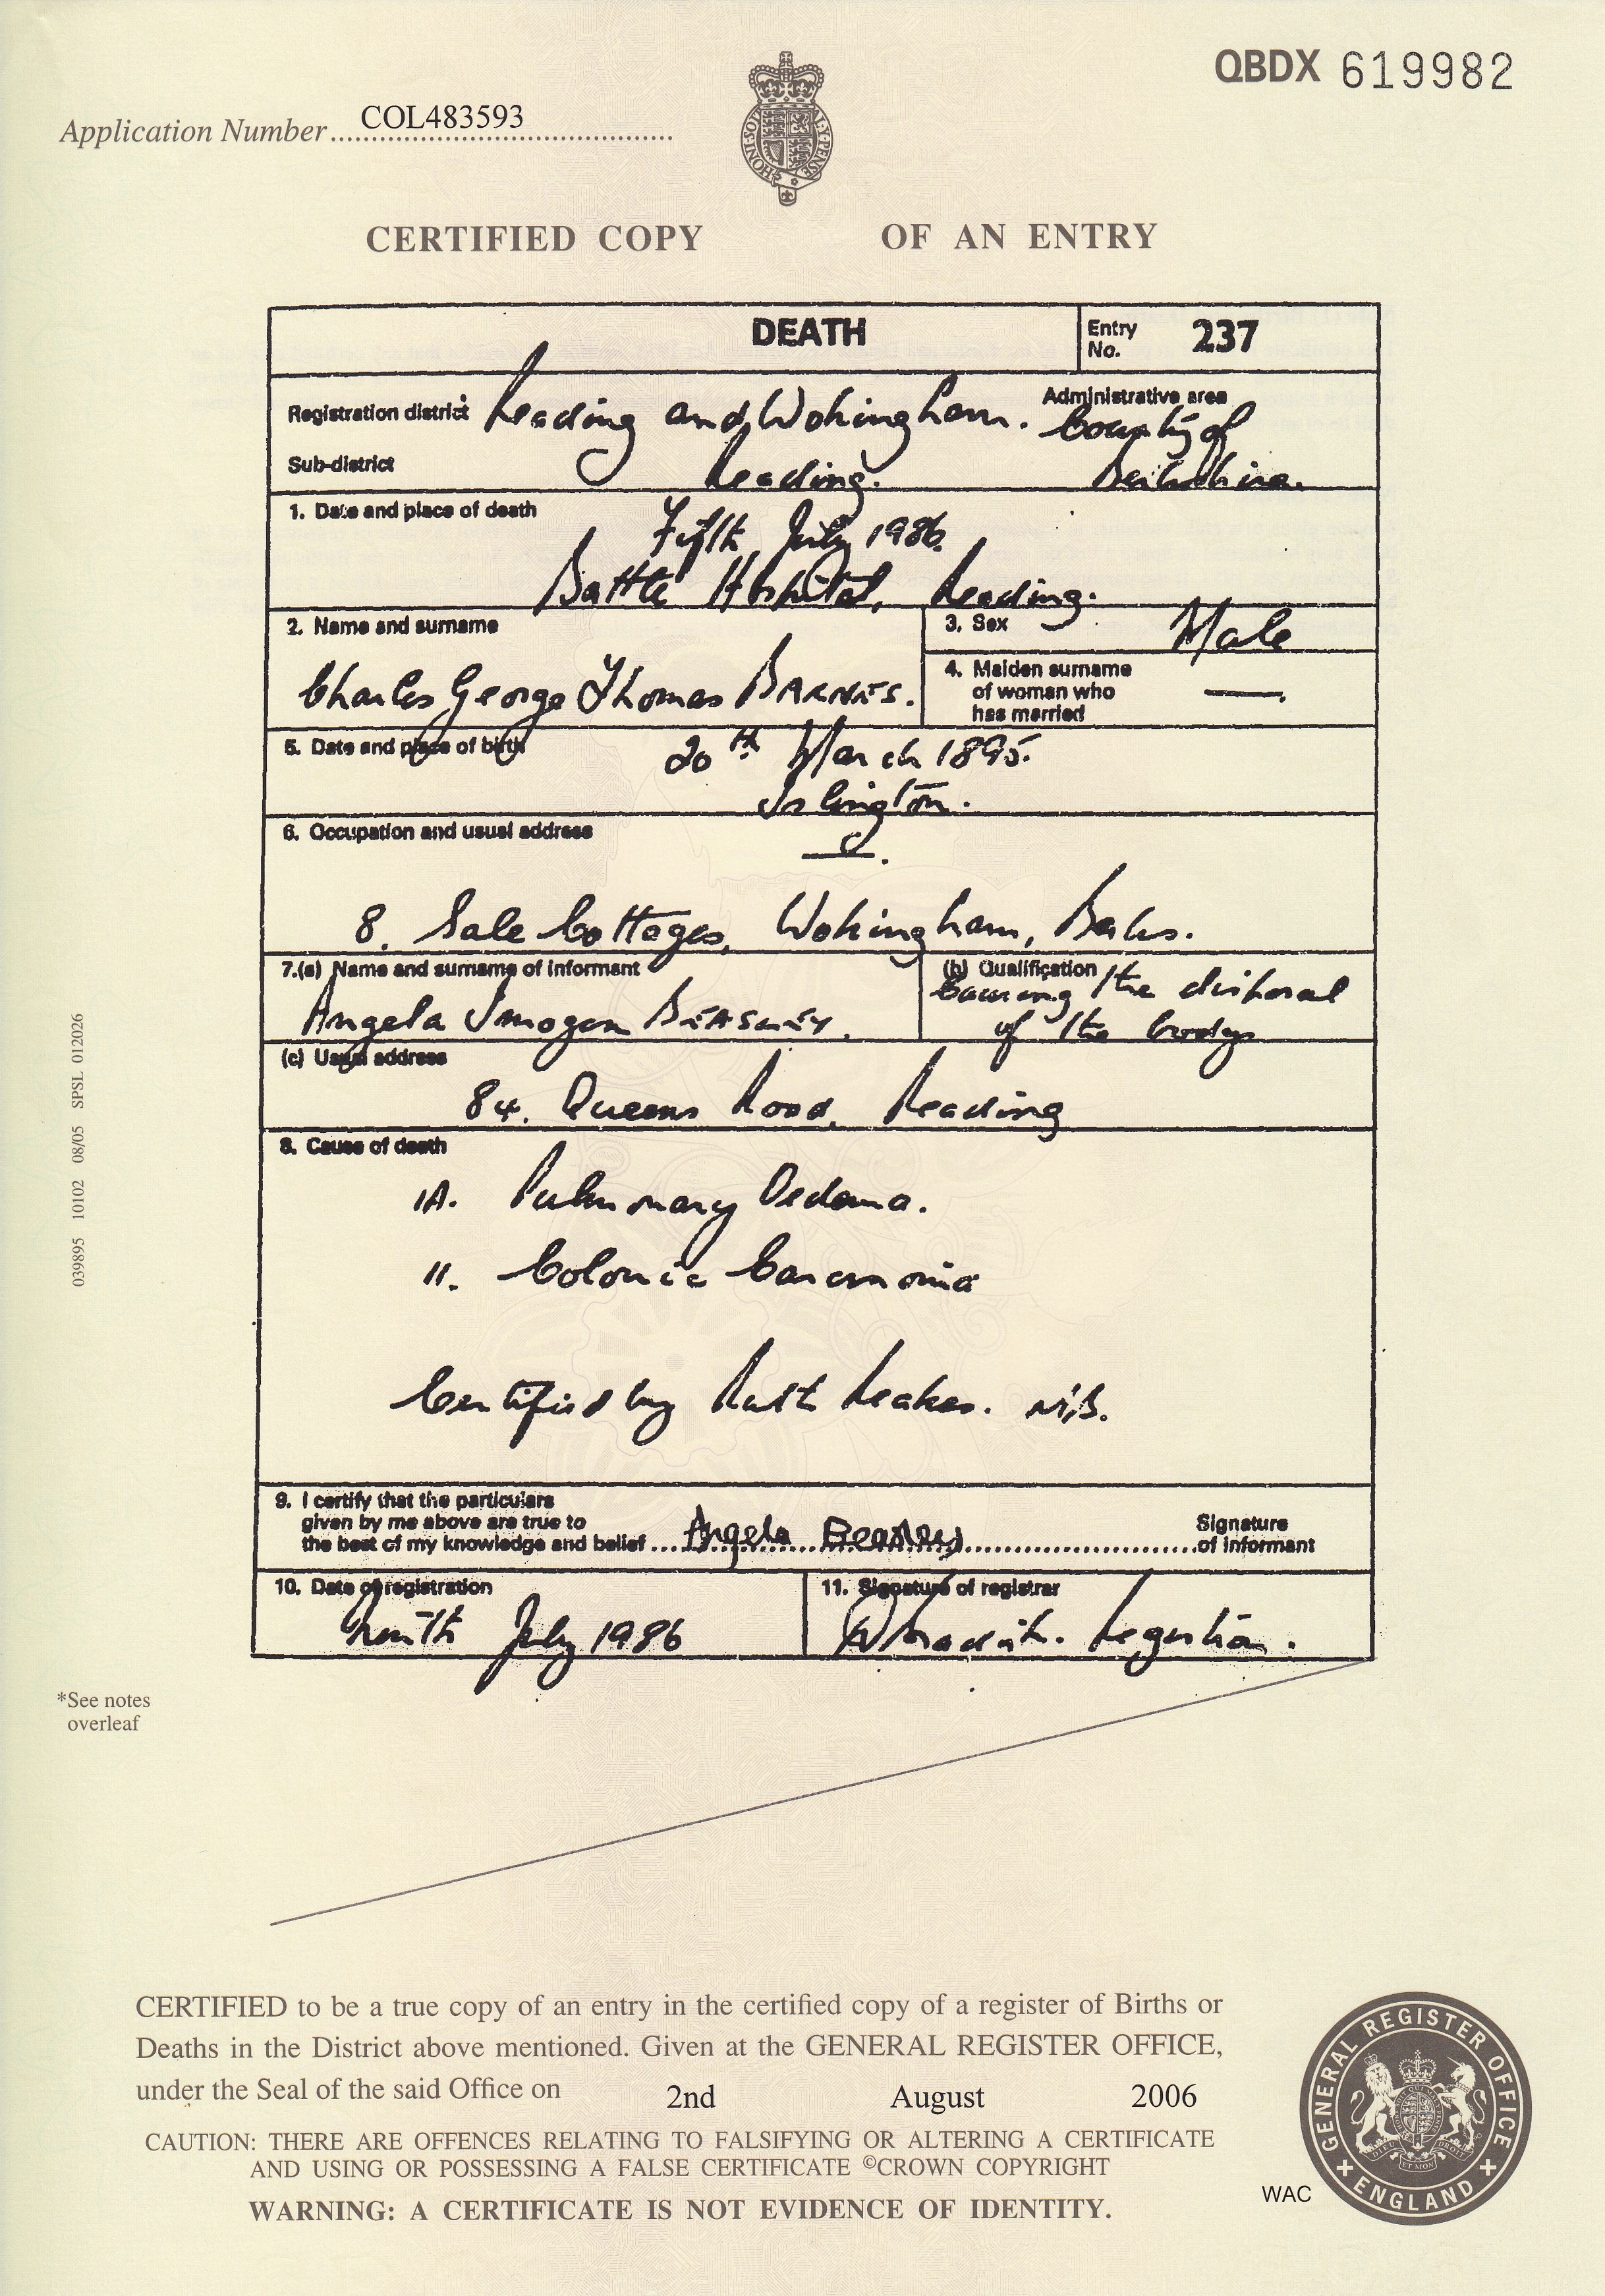 QBDX 619982
Application Number COL483593
CERTIFIED COPY OF AN ENTRY
DEATH
Entry No. 237
Registration district Reading and Wokingham.
Administrative area County of Berkshire.
Sub-district Reading.
1. Date and place of death
Fifth July 1986.
Battle Hospital, Reading.
2. Name and surname
Charles George Thomas BARNES.
3. Sex Male
4. Maiden surname
of woman who
has married
—.
5. Date and place of birth
20th March 1895.
Islington.
6. Occupation and usual address
—.
8, Sale Cottages, Wokingham, Berks.
7.(a) Name and surname of informant
Angela Imogen BEASLEY.
(b) Qualification
Causing the disposal
of the body
(c) Usual address
84, Queens Road, Reading
8. Cause of death
1A. Pulmonary Oedema.
11. Colonic Carcinoma
Certified by Ruth M.B.
9. I certify that the particulars
given by me above are true to
the best of my knowledge and belief Angela Beasley Signature
of informant
10. Date of registration
July 1986
11. Signature of registrar
Registrar.
*See notes
overleaf
039895 10102 08/05 SPSL 012026
CERTIFIED to be a true copy of an entry in the certified copy of a register of Births or
Deaths in the District above mentioned. Given at the GENERAL REGISTER OFFICE,
under the Seal of the said Office on 2nd August 2006
CAUTION: THERE ARE OFFENCES RELATING TO FALSIFYING OR ALTERING A CERTIFICATE
AND USING OR POSSESSING A FALSE CERTIFICATE ©CROWN COPYRIGHT
WARNING: A CERTIFICATE IS NOT EVIDENCE OF IDENTITY.
WAC
GENERAL REGISTER OFFICE
ENGLAND